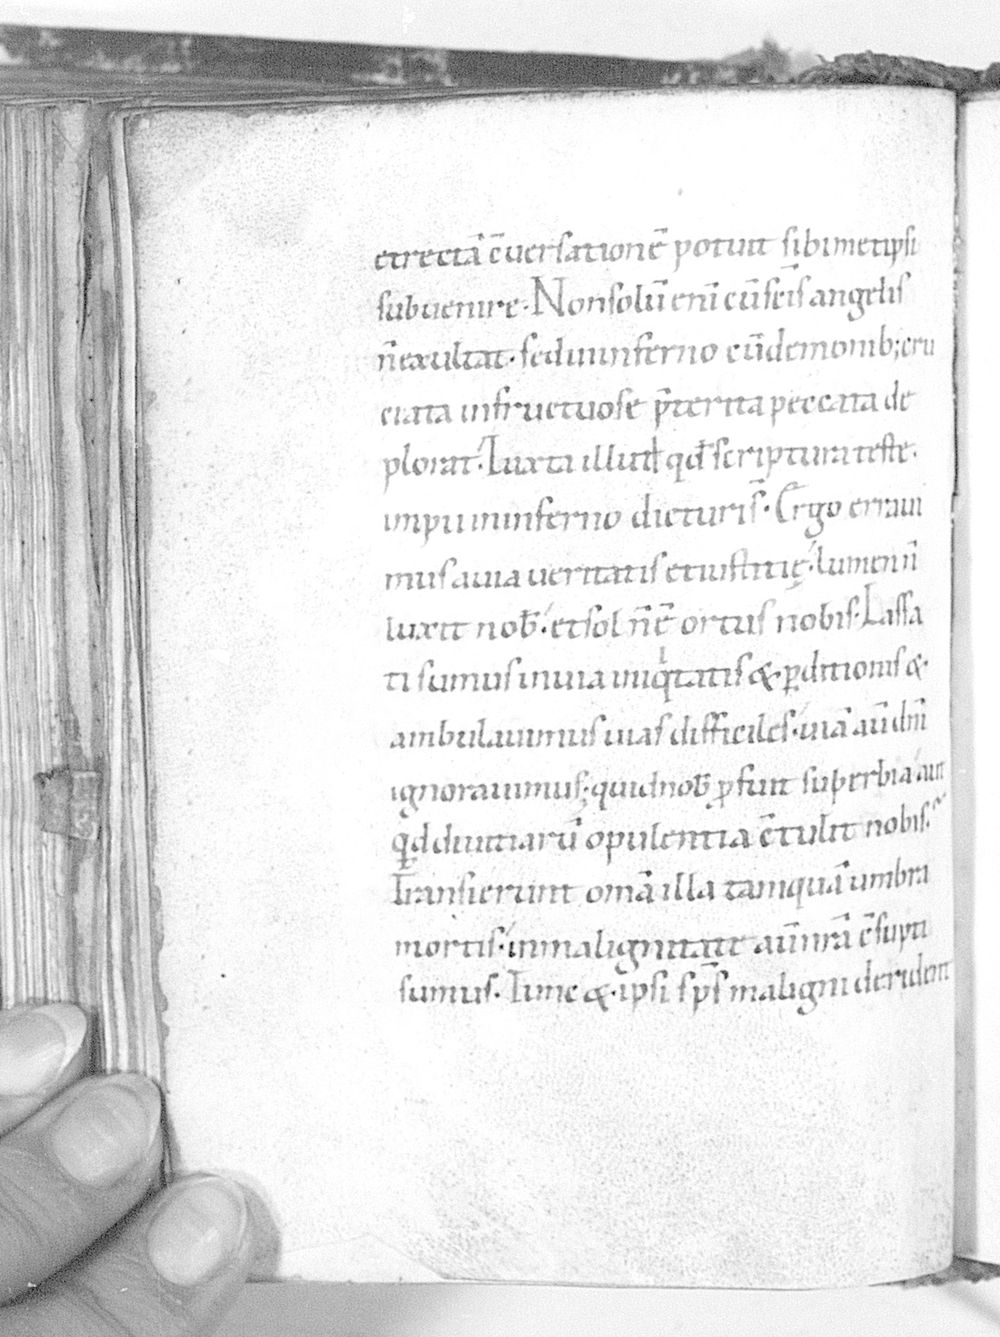 et rectā c̄uersationē potuit sibimetipsi
subuenire. Non solū eni cū sc̄is angelis
n̄ exultat. sed in inferno cū demonib; cru
ciata infructuose p̄terita peccata de
plorat. Iuxta illud qđ scriptura teste.
impii in inferno dicturi s̄. Ergo erraui
mus a uia ueritatis et iustitię. lumen n̄
luxit nob̄. et sol n̄ ē ortus nobis. Lassa
ti sumus in uia iniqͥtatis & ꝑditionis &
ambulauimus uias difficiles. uiā aū dn̄i
ignorauimus; quid nob̄ ꝓfuit superbia aut
qd diuitiarū opulentia c̄tulit nobis.
Transierunt om̄a illa tamquā umbra
mortis. in malignitate aū nr̄a c̄supti
sumus. Tunc & ipsi sp̄s maligni derident